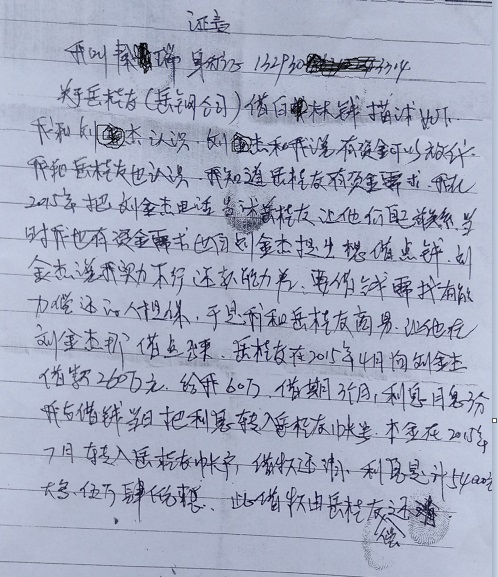 证言
我叫秦 瑞 身份证 132930 3314
关于岳桂友(岳钢公司)借白 林钱描述如下
我和刘金杰认识.刘金杰和我说有资金可以放贷.
我和岳桂友也认识.我知道岳桂友有资金需求.我在
2015年把刘金杰电话告诉岳桂友让他们自己联系.当
时我也有资金需求也向刘金杰提出想借点钱.刘
金杰说我实力不行还款能力差.要借钱需找有能
力偿还的人担保,于是我和岳桂友商易.让他在
刘金杰那借点出来.岳桂友在2015年4月向刘金杰
借款260万元.给我60万.借期3个月,利息月息3分
我与借钱当日把利息转入岳桂友帐号.本金在2015年
7月转入岳桂友帐户,借款还清.利息是计54000元
大写伍万肆仟整.此借款由岳桂友还
偿